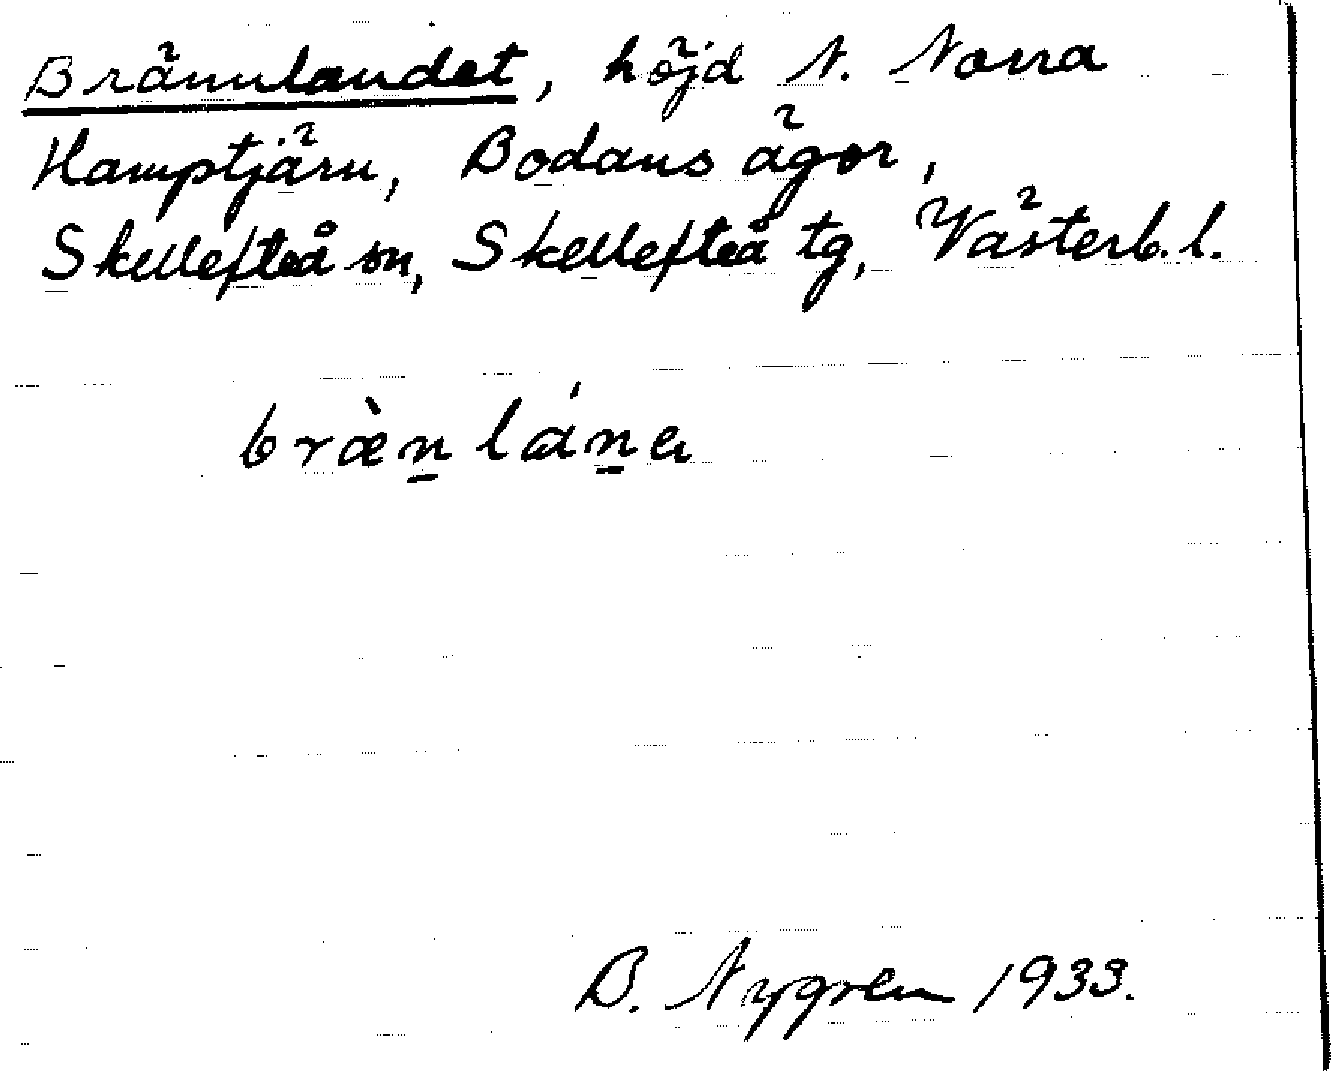 Brännlandet, höjd N. Norra
Hamptjärn, Bodans ägor,
Skellefteå sn, Skellefteå tg, Västerb. l.
bræ̀n̲ lán̲a
B. Nygren 1933.